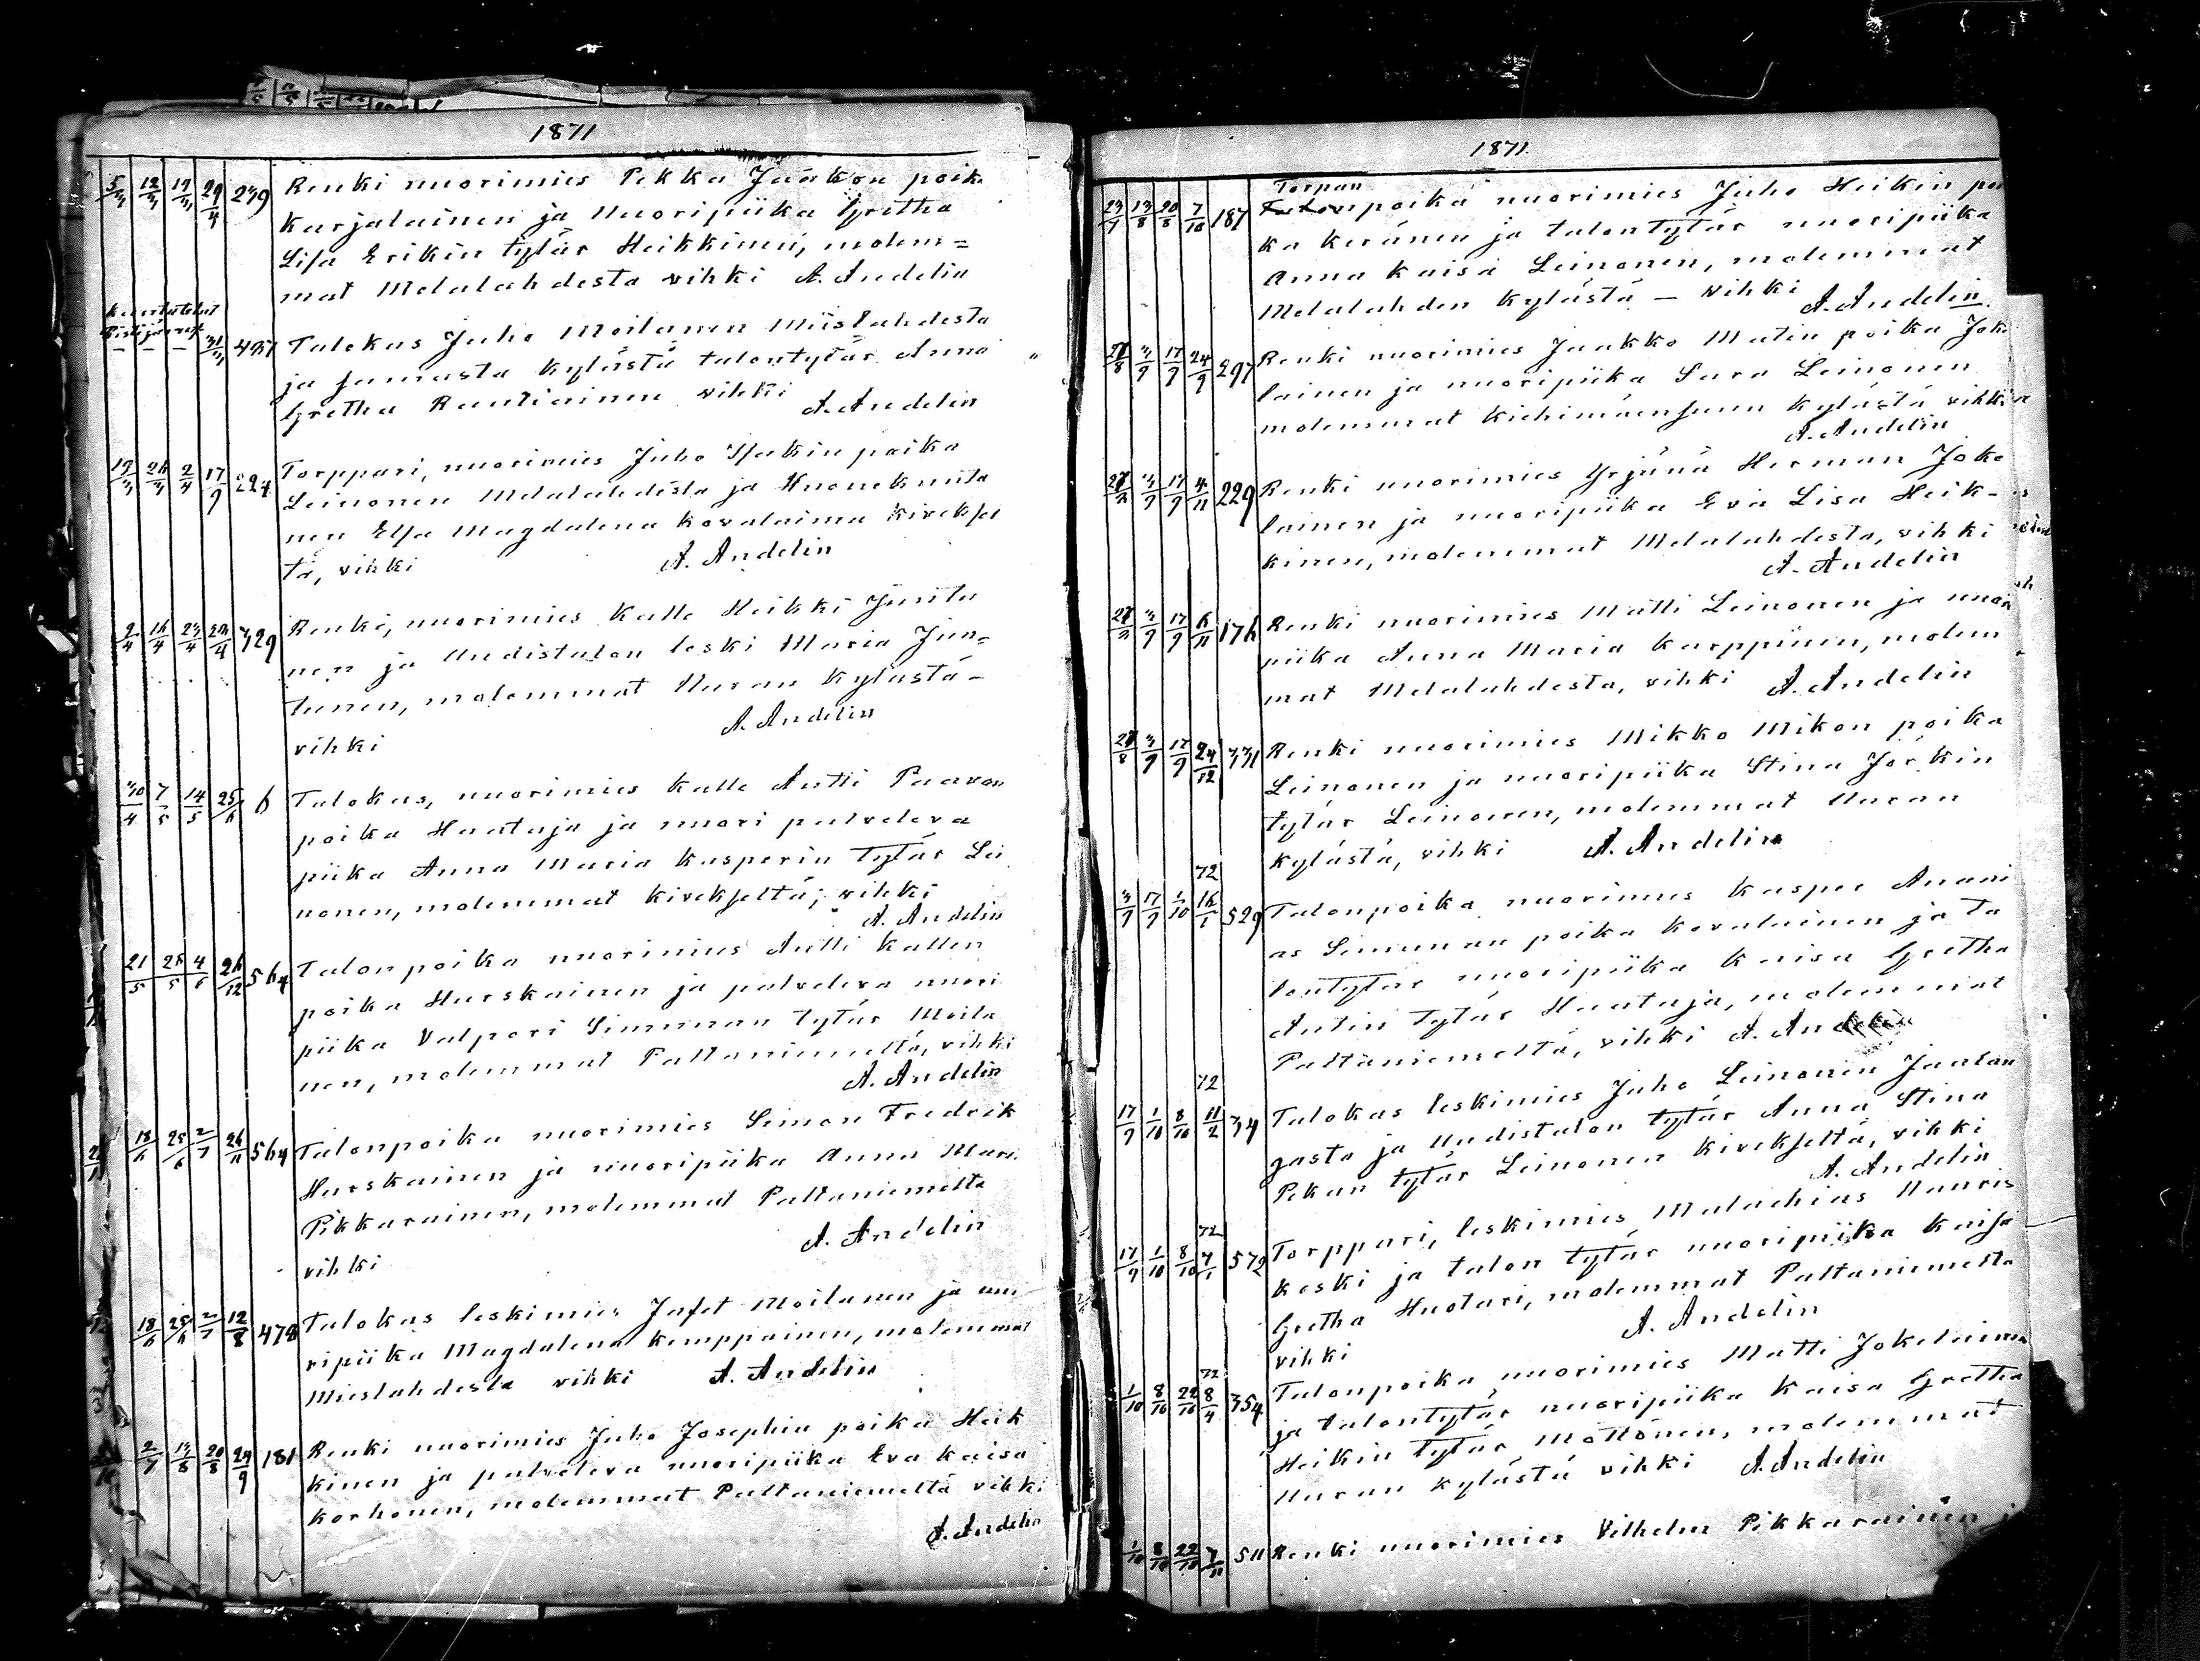 1871
5/3 12/3 19/3 29/4 239 Renki nuorimies Pekka Jaakon poik.
Karjalainen ja Nuoripiika Gretha
Lisa Erikin tytär Heikkinen, molem=
mat Melalahdesta vihki A. Andelin
Kuulutetut
Ristijärvet
— — — 31/3 497 Talokas Juho Moilanen Mieslahdesta
ja samasta kylästä talontytär Anna
Gretha Rautiainen vihki
A. Andelin
19/3 26/3 2/4 17/9 224 Torppari, nuorimies Juho Isakin poika
Leinonen Melalahdesta ja Huonekunta
nen Elsa Magdalena Kovalainen Kivekses
tä, vihki A. Andelin
9/4 16/4 23/4 28/4 329 Renki, nuorimies Kalle Heikki Juntu
nen ja Uudistalon leski Maria Jun=
tunen, molemmat Uuran Kylästä –
A. Andelin
vihki
30/4 7/5 14/5 25/6 6 Talokas, nuorimies Kalle Antti Paavon
poika Haataja ja nuori palveleva
piika Anna Maria Kasperin tytär Lei
nonen, molemmat Kivekseltä; vihki
A. Andelin
21/5 28/5 4/6 26/12 564 Talonpoika nuorimies Antti Kallen
poika Hurskainen ja palveleva nuori
piika Valpori Simunan tytär Moila
nen, molemmat Paltaniemeltä, vihki
A. Andelin
18/6 25/6 2/7 26/11 564 Talonpoika nuorimies Simon Fredrik
Hurskainen ja nuoripiika Anna Mari
Pikkarainen, molemmat Paltaniemeltä
A. Andelin
vihki
18/6 25/6 2/7 12/8 478 Talokas leskimies Jafet Moilanen ja nuo
ripiika Magdalena Kemppainen, molemmat
Mieslahdesta vihki A. Andelin
2/7 13/8 20/8 24/9 181 Renki nuorimies Juho Josephin poika Heik
kinen ja palveleva nuoripiika Eva Kaisa
Korhonen, molemmat Paltaniemeltä vihki
A. Andelin
1871.
Torpan
23/7 13/8 20/8 7/10 187 Talonpoika nuorimies Juho Heikin poi
ka Keränen ja talontytär nuoripiika
Anna Kaisa Leinonen, molemmat
Melalahden Kylästä – vihki
A. Andelin
27/8 3/9 17/9 24/9 297 Renki nuorimies Jaakko Matin poika Joke
lainen ja nuoripiika Sara Leinonen
molemmat Kiehimäensuun Kylästä vihki
A. Andelin
27/8 3/9 17/9 4/11 229 Renki nuorimies Yrjänä Herman Joke
lainen ja nuoripiika Eva Lisa Heik-
kinen, molemmat Melalahdesta, vihki
A. Andelin
27/8 3/9 17/9 6/11 176 Renki nuorimies Matti Leinonen ja nuori
piika Anna Maria Karppinen, molem
mat Melalahdesta, vihki A. Andelin
27/8 3/9 17/9 24/12 331 Renki nuorimies Mikko Mikon poika
Leinonen ja nuoripiika Stina Jörkin
tytär Leinonen, molemmat Uuran
kylästä, vihki A. Andelin
72
3/9 17/9 1/10 16/1 529 Talonpoika nuorimies Kasper Anani
as Simunan poika Kovalainen ja ta
lontytär nuoripiika Kaisa Gretha
Antin tytär Haataja, molemmat
Paltaniemeltä, vihki A. Andelin
72
17/9 1/10 8/10 11/2 34 Talokas leskimies Juho Leinonen Jaalan
gasta ja Uudistalon tytär Anna Stina
Pekan tytär Leinonen Kivekseltä, vihki
A. Andelin
72
17/9 1/10 8/10 7/1 572 Torppari, leskimies Malachias Mauris
koski ja talon tytär nuoripiika Kaisa
Gretha Huotari, molemmat Paltaniemeltä
A. Andelin
vihki
72
1/10 8/10 22/10 8/4 354 Talonpoika nuorimies Matti Jokelainen
ja talontytär nuoripiika Kaisa Gretha
Heikin tytär Möttönen, molemmat
Uuran kylästä vihki A. Andelin
1/10 8/10 22/10 7/11 511 Renki nuorimies Vilhelm Pikkarainen